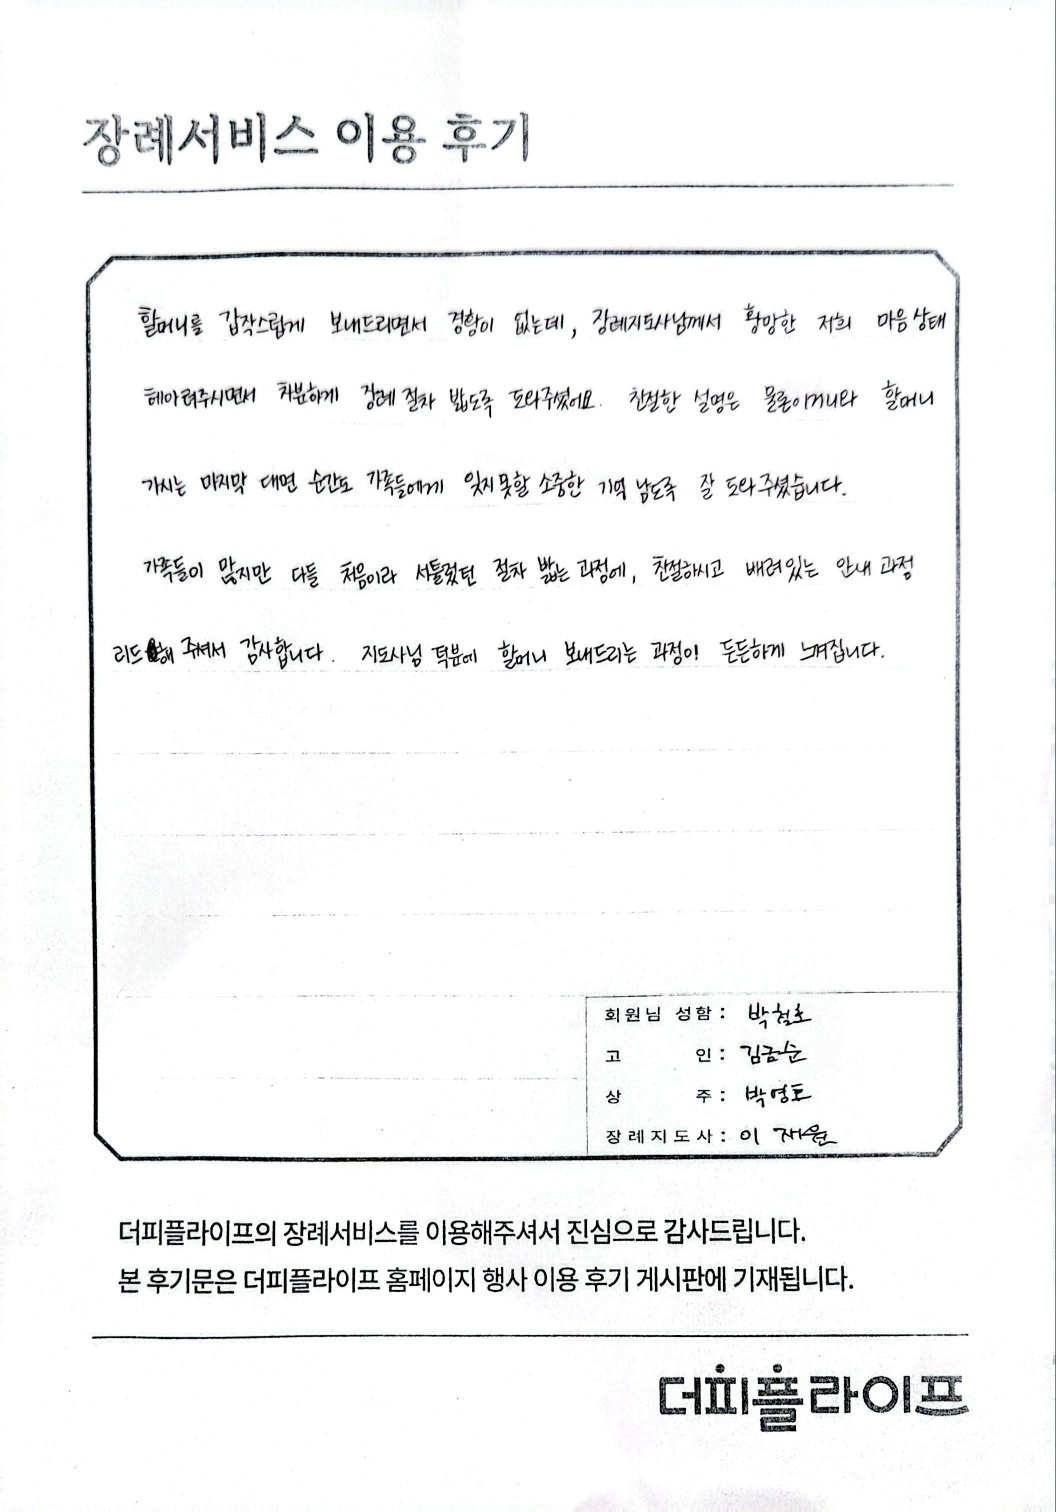 장례서비스 이용 후기
할머니를 갑작스럽게 보내드리면서 경황이 없는데, 장례지도사님께서 황망한 저희 마음상태
헤아려주시면서 차분하게 장례 절차 밟도록 도와주셨어요. 친절한 설명은 물론이거니와 할머니
가시는 마지막 대면 순간도 가족들에게 잊지못할 소중한 기억 남도록 잘 도와주셨습니다.
가족들이 많지만 다들 처음이라 서툴렀던 절차 밟는 과정에, 친절하시고 배려있는 안내 과정
리드해 주셔서 감사합니다. 지도사님 덕분에 할머니 보내드리는 과정이 든든하게 느껴집니다.
회원님 성함 : 박철호
고 인 : 김금순
상 주 : 박영호
장례지도사 : 이재원
더피플라이프의 장례서비스를 이용해주셔서 진심으로 감사드립니다.
본 후기문은 더피플라이프 홈페이지 행사 이용 후기 게시판에 기재됩니다.
더피플라이프